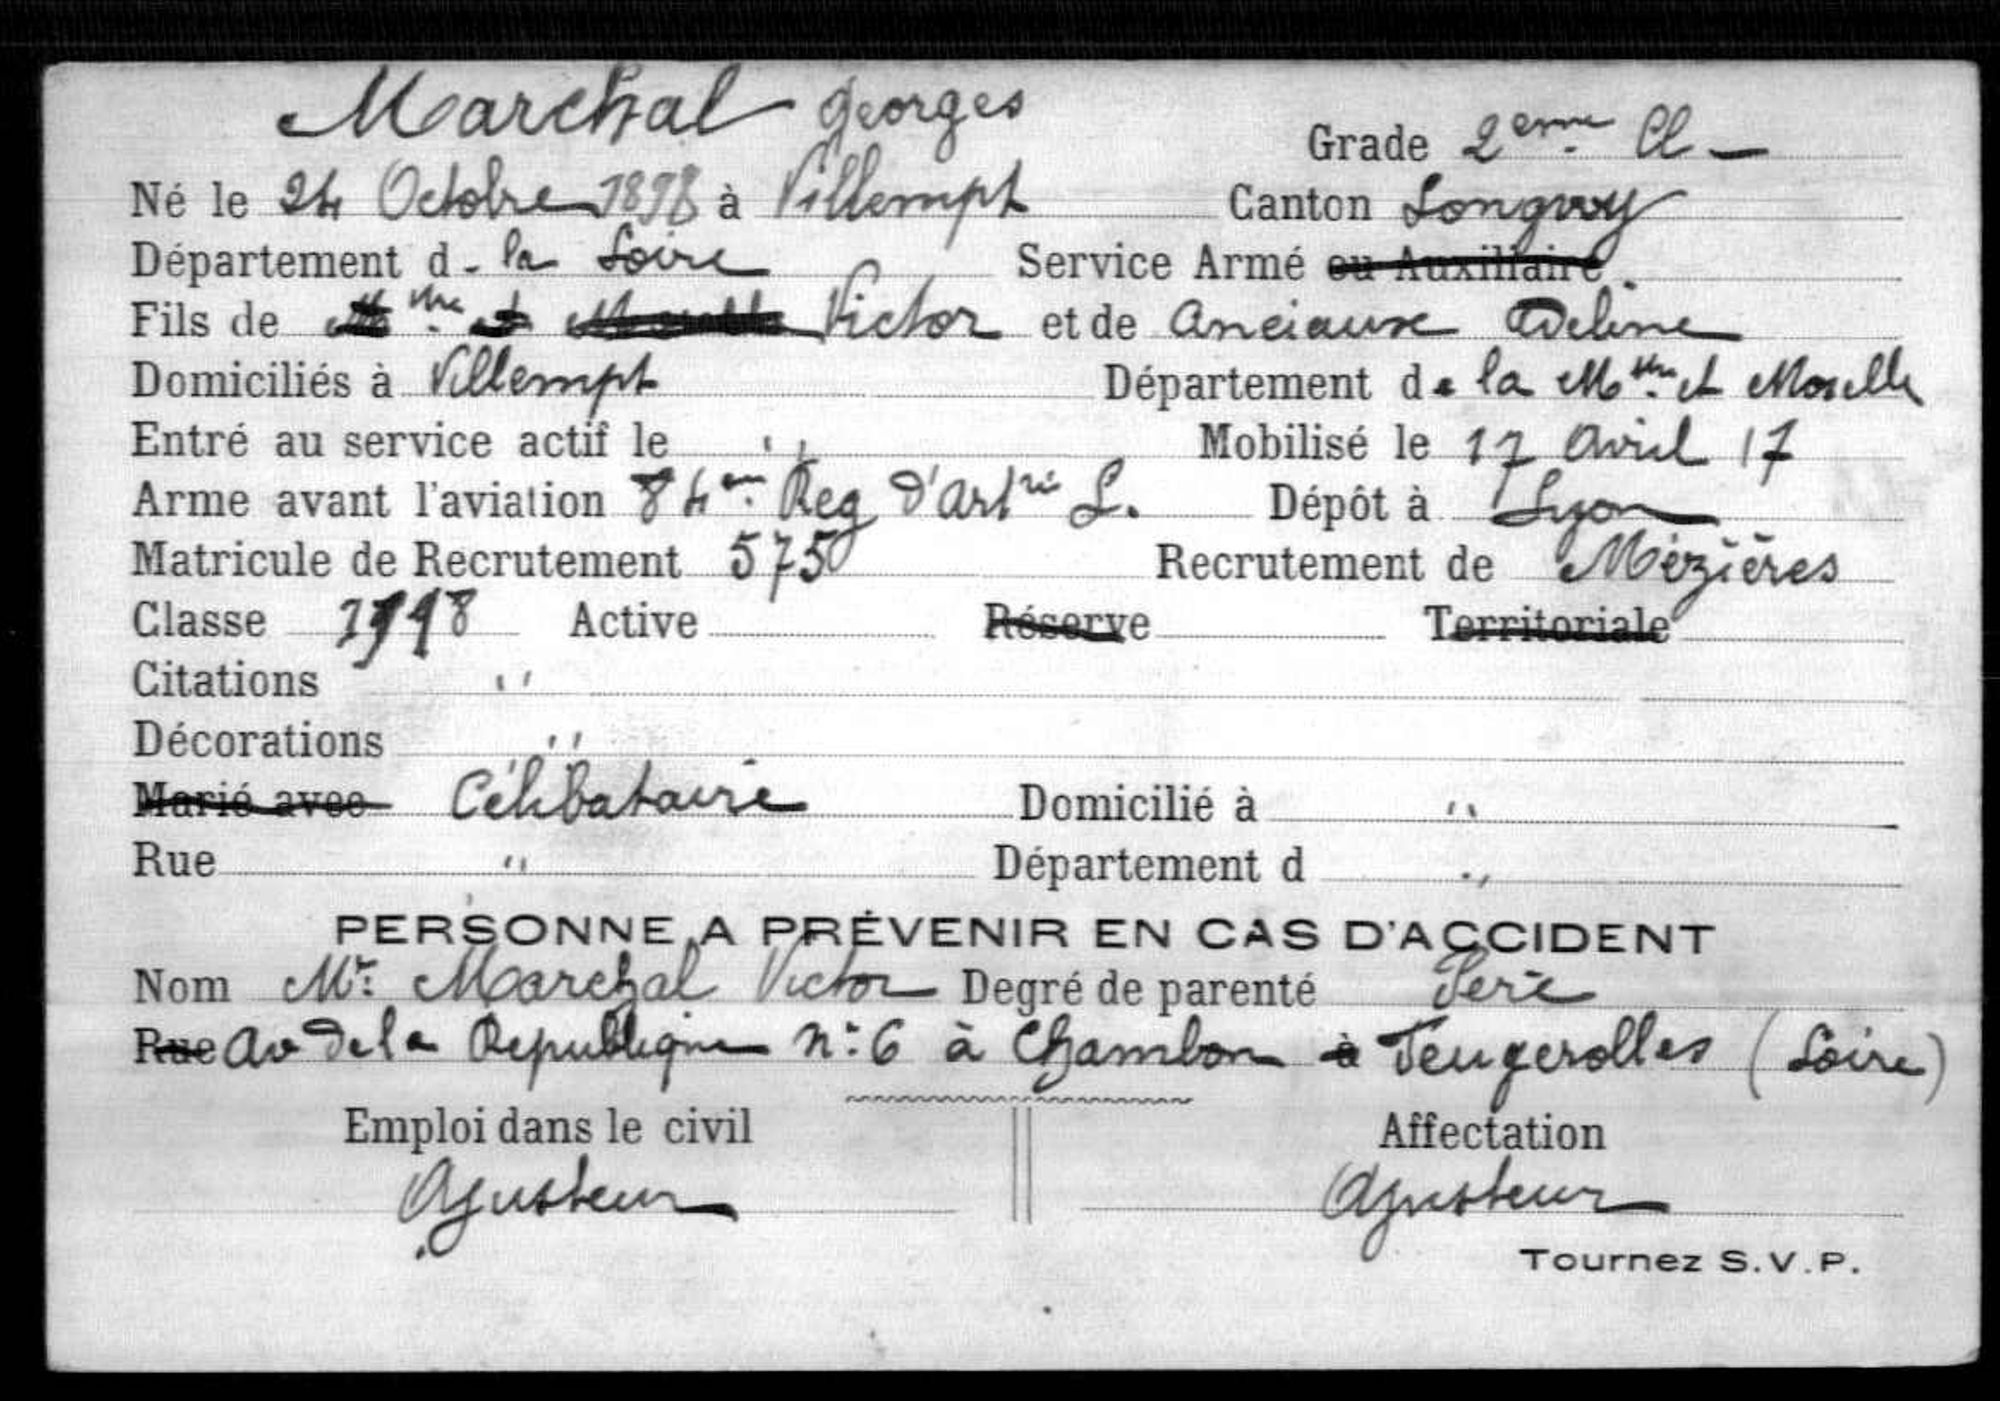 Marchal Georges
Grade 2eme Cl -
Né le 24 Octobre 1898 à Villempt Canton Longwy
Département d - la Loire Service Armé ou Auxiliaire.
Fils de Victor et de Anciaux Deline
Domiciliés à Villempt Département de la Mthe et Moselle
Entré au service actif le " Mobilisé le 17 Avril 17
Arme avant l'aviation 84em Reg d'Artrie L. Dépôt à Lyon
Matricule de Recrutement 575 Recrutement de Mézières
Classe 1918 Active Réserve Territoriale
Citations "
Décorations "
Marié avec Célibataire Domicilié à "
Rue " Département d "
PERSONNE A PRÉVENIR EN CAS D'ACCIDENT
Nom Mr. Marchal Victor Degré de parenté Père
Rue Av de la Republique n: 6 à Chambon à Feugerolles (Loire)
Emploi dans le civil Affectation
Ajusteur Ajusteur
Tournez S.V.P.